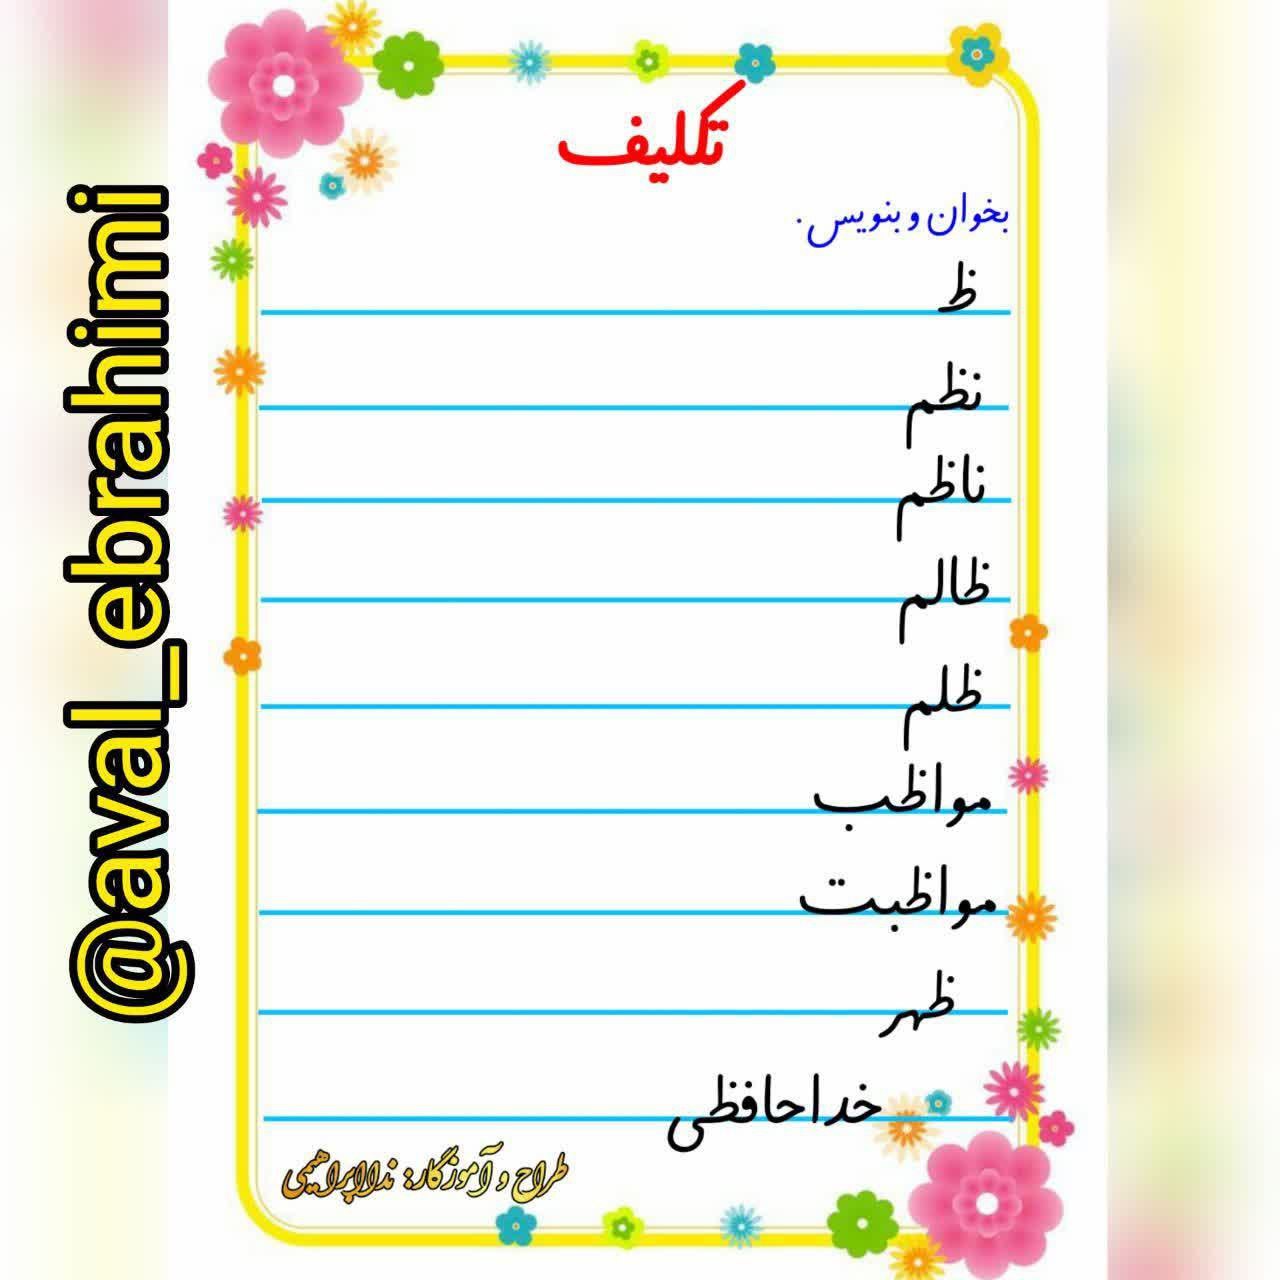 تکلیف
بخوان و بنویس.
ظ
نظم
ناظم
ظالم
ظلم
مواظب
مواظبت
ظهر
خداحافظی
طراح و آموزگار: نداابراهیمی
@aval_ebrahimi